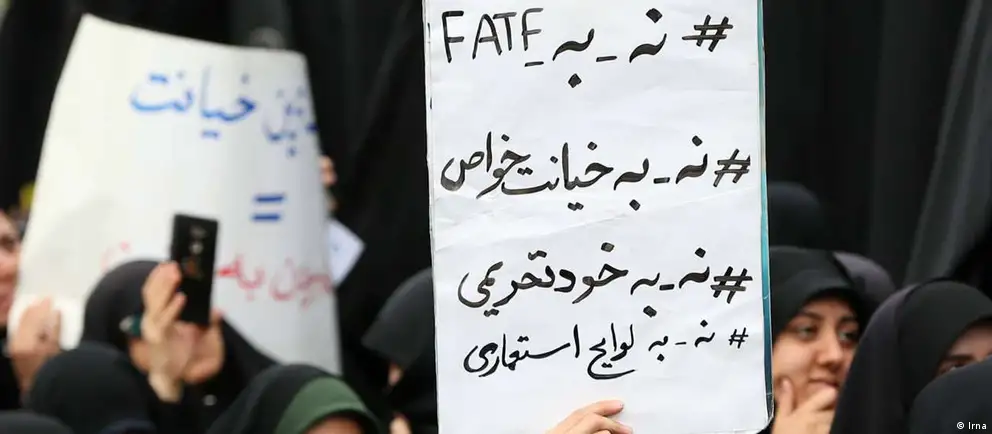 #نه_به_FATF
#نه_به_خیانت_خواص
#نه_به_خودتحریمی
#نه_به لوایح استعماری
خیانت
=
© Irna